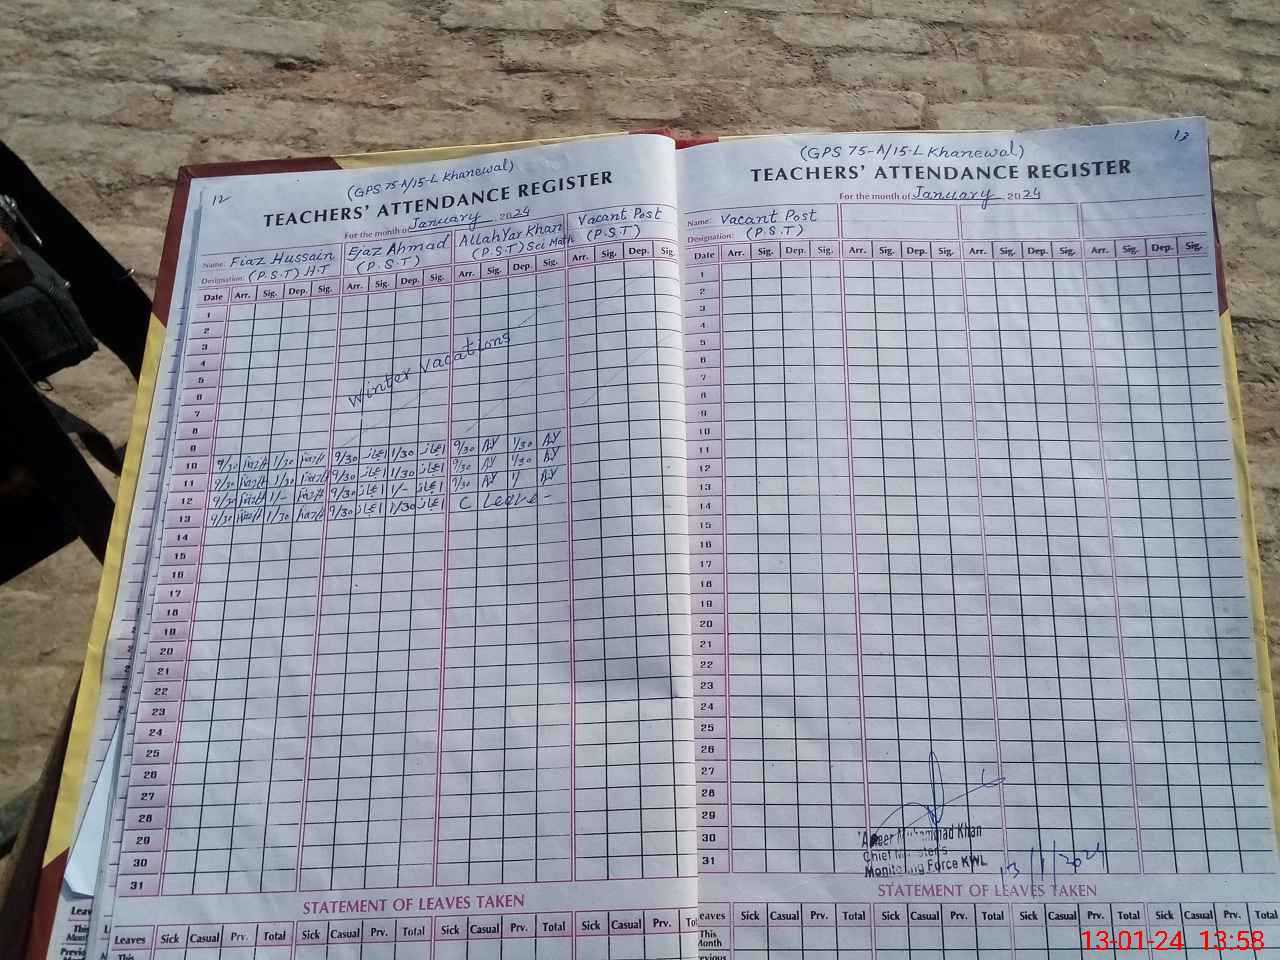 12
(GPS 75-A/15-L Khanewal)
TEACHERS' ATTENDANCE REGISTER
For the month of January 2024
Name: Fiaz Hussain Ejaz Ahmad AllahYar Khan Vacant Post
Designation: (P.S.T) H.T (P.S.T) (P.S.T) Sci Math (P.S.T)
Date Arr. Sig. Dep. Sig. Arr. Sig. Dep. Sig. Arr. Sig. Dep. Sig. Arr. Sig. Dep. Sig.
1
2
3
4
5
6
7
8
Winter Vacations
9
10 9/30 1/30 9/30 اعجاز 1/30 اعجاز 9/30 AY 1/30 AY
11 9/30 1/30 9/30 اعجاز 1/30 اعجاز 9/30 AY 1/30 AY
12 9/30 1/- 9/30 اعجاز 1/- اعجاز 9/30 AY 1/ AY
13 9/30 1/30 9/30 اعجاز 1/30 اعجاز C Leave -
14
15
16
17
18
19
20
21
22
23
24
25
26
27
28
29
30
31
STATEMENT OF LEAVES TAKEN
Leaves Sick Casual Prv. Total Sick Casual Prv. Total Sick Casual Prv. Total Sick Casual Prv.
This
13
(GPS 75-A/15-L Khanewal)
TEACHERS' ATTENDANCE REGISTER
For the month of January 2024
Name: Vacant Post
Designation: (P.S.T)
Date Arr. Sig. Dep. Sig. Arr. Sig. Dep. Sig. Arr. Sig. Dep. Sig. Arr. Sig. Dep. Sig.
1
2
3
4
5
6
7
8
9
10
11
12
13
14
15
16
17
18
19
20
21
22
23
24
25
26
27
28
29
30
31
Ameer Muhammad Khan
Chief Minister's
Monitoring Force KWL
13/1/2024
STATEMENT OF LEAVES TAKEN
Leaves Sick Casual Prv. Total Sick Casual Prv. Total Sick Casual Prv. Total Sick Casual Prv. Total
This
Month
13-01-24 13:58